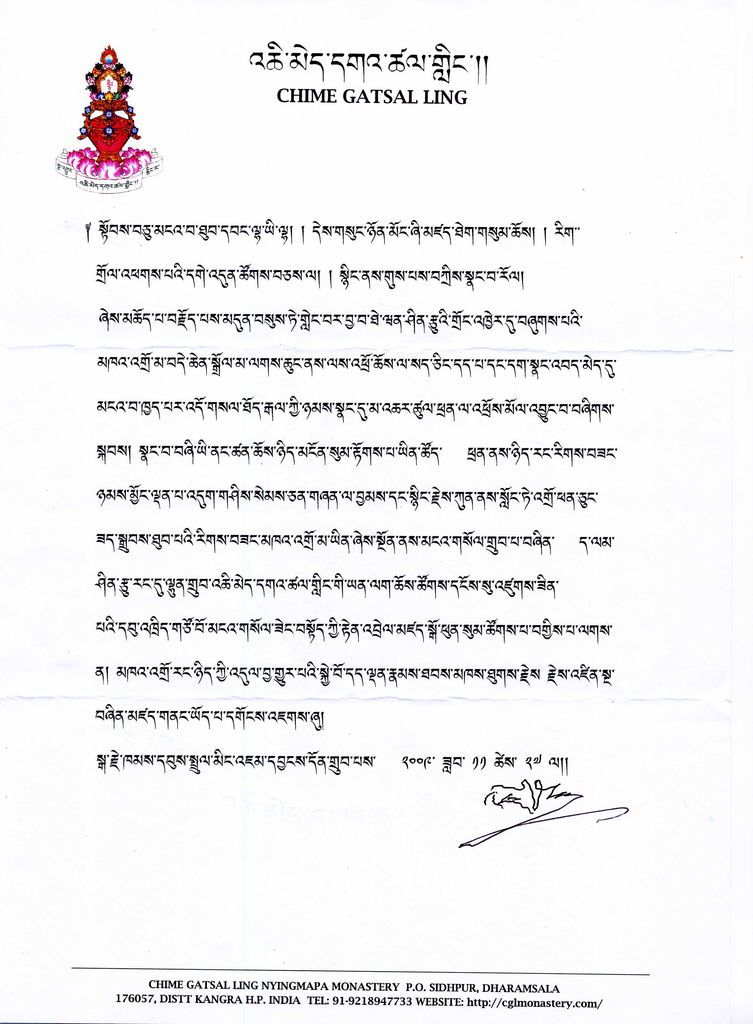 འཆི་མེད་དགའ་ཚལ་གླིང་།།
CHIME GATSAL LING
འཆི་མེད་དགའ་ཚལ་གླིང་།།
༈ སྟོབས་བཅུ་མངའ་བ་ཐུབ་དབང་ལྷ་ཡི་ལྷ། ། དེས་གསུང་ཉོན་མོང་ཞི་མཛད་ཐེག་གསུམ་ཆོས། ། རིག་
གྲོལ་འཕགས་པའི་དགེ་འདུན་ཚོགས་བཅས་ལ། ། སྙིང་ནས་གུས་པས་བཀྲིས་སྣང་བ་རོལ།
ཞེས་མཆོད་པ་བརྗོད་པས་མདུན་བསུས་ཏེ་གླེང་བར་བྱ་བ་ཐེ་ཝན་ཤིན་རྩུའི་གྲོང་འཁྱེར་དུ་བཞུགས་པའི་
མཁའ་འགྲོ་མ་བདེ་ཆེན་སྒྲོལ་མ་ལགས་ཆུང་ནས་ལས་འཕྲོ་ཆོས་ལ་སད་ཅིང་དད་པ་དང་དག་སྣང་འབད་མེད་དུ་
མངའ་བ་ཁྱད་པར་འོད་གསལ་ཐོད་རྒལ་ཀྱི་ཉམས་སྣང་དུ་མ་འཆར་ཚུལ་ཕྲན་ལ་འཕྲོས་མོལ་འབྱུང་བ་བཞིགས་
སྐབས། སྣང་བ་བཞི་ཡི་ནང་ཚན་ཆོས་ཉིད་མངོན་སུམ་རྟོགས་པ་ཡིན་ཚོད་ ཕྲན་ནས་ཉིད་རང་རིགས་བཟང་
ཉམས་མྱོང་ལྡན་པ་འདུག་གཤིས་སེམས་ཅན་གཞན་ལ་བྱམས་དང་སྙིང་རྗེས་ཀུན་ནས་སློང་ཏེ་འགྲོ་ཕན་ཅུང་
ཟད་སྒྲུབས་ཐུབ་པའི་རིགས་བཟང་མཁའ་འགྲོ་མ་ཡིན་ཞེས་སྔོན་ནས་མངའ་གསོལ་གྲུབ་པ་བཞིན་ ད་ལམ་
ཤིན་རྩུ་རང་དུ་ལྷུན་གྲུབ་འཆི་མེད་དགའ་ཚལ་གླིང་གི་ཡན་ལག་ཆོས་ཚོགས་དངོས་སུ་འཛུགས་ཟིན་
པའི་དབུ་འཁྲིད་གཙོ་བོ་མངའ་གསོལ་ཟེང་བསྟོད་ཀྱི་རྟེན་འབྲེལ་མཛད་སྒོ་ཕུན་སུམ་ཚོགས་པ་བགྱིས་པ་ལགས་
ན། མཁའ་འགྲོ་རང་ཉིད་ཀྱི་འདུལ་བྱ་གྱུར་པའི་སྐྱེ་བོ་དད་ལྡན་རྣམས་ཐབས་མཁས་ཐུགས་རྗེས་ རྗེས་འཛིན་སྔ་
བཞིན་མཛད་གནང་ཡོད་པ་དགོངས་འཇགས་ཞུ།
སྒ་རྗེ་ཁམས་དབུས་སྤྲུལ་མིང་འཇམ་དབྱངས་དོན་གྲུབ་པས་ ༢༠༠༩་ ཟླབ་ ༡༡ ཚེས་ ༢༧ ལ།།
CHIME GATSAL LING NYINGMAPA MONASTERY P.O. SIDHPUR, DHARAMSALA
176057, DISTT KANGRA H.P. INDIA TEL: 91-9218947733 WEBSITE: http://cglmonastery.com/